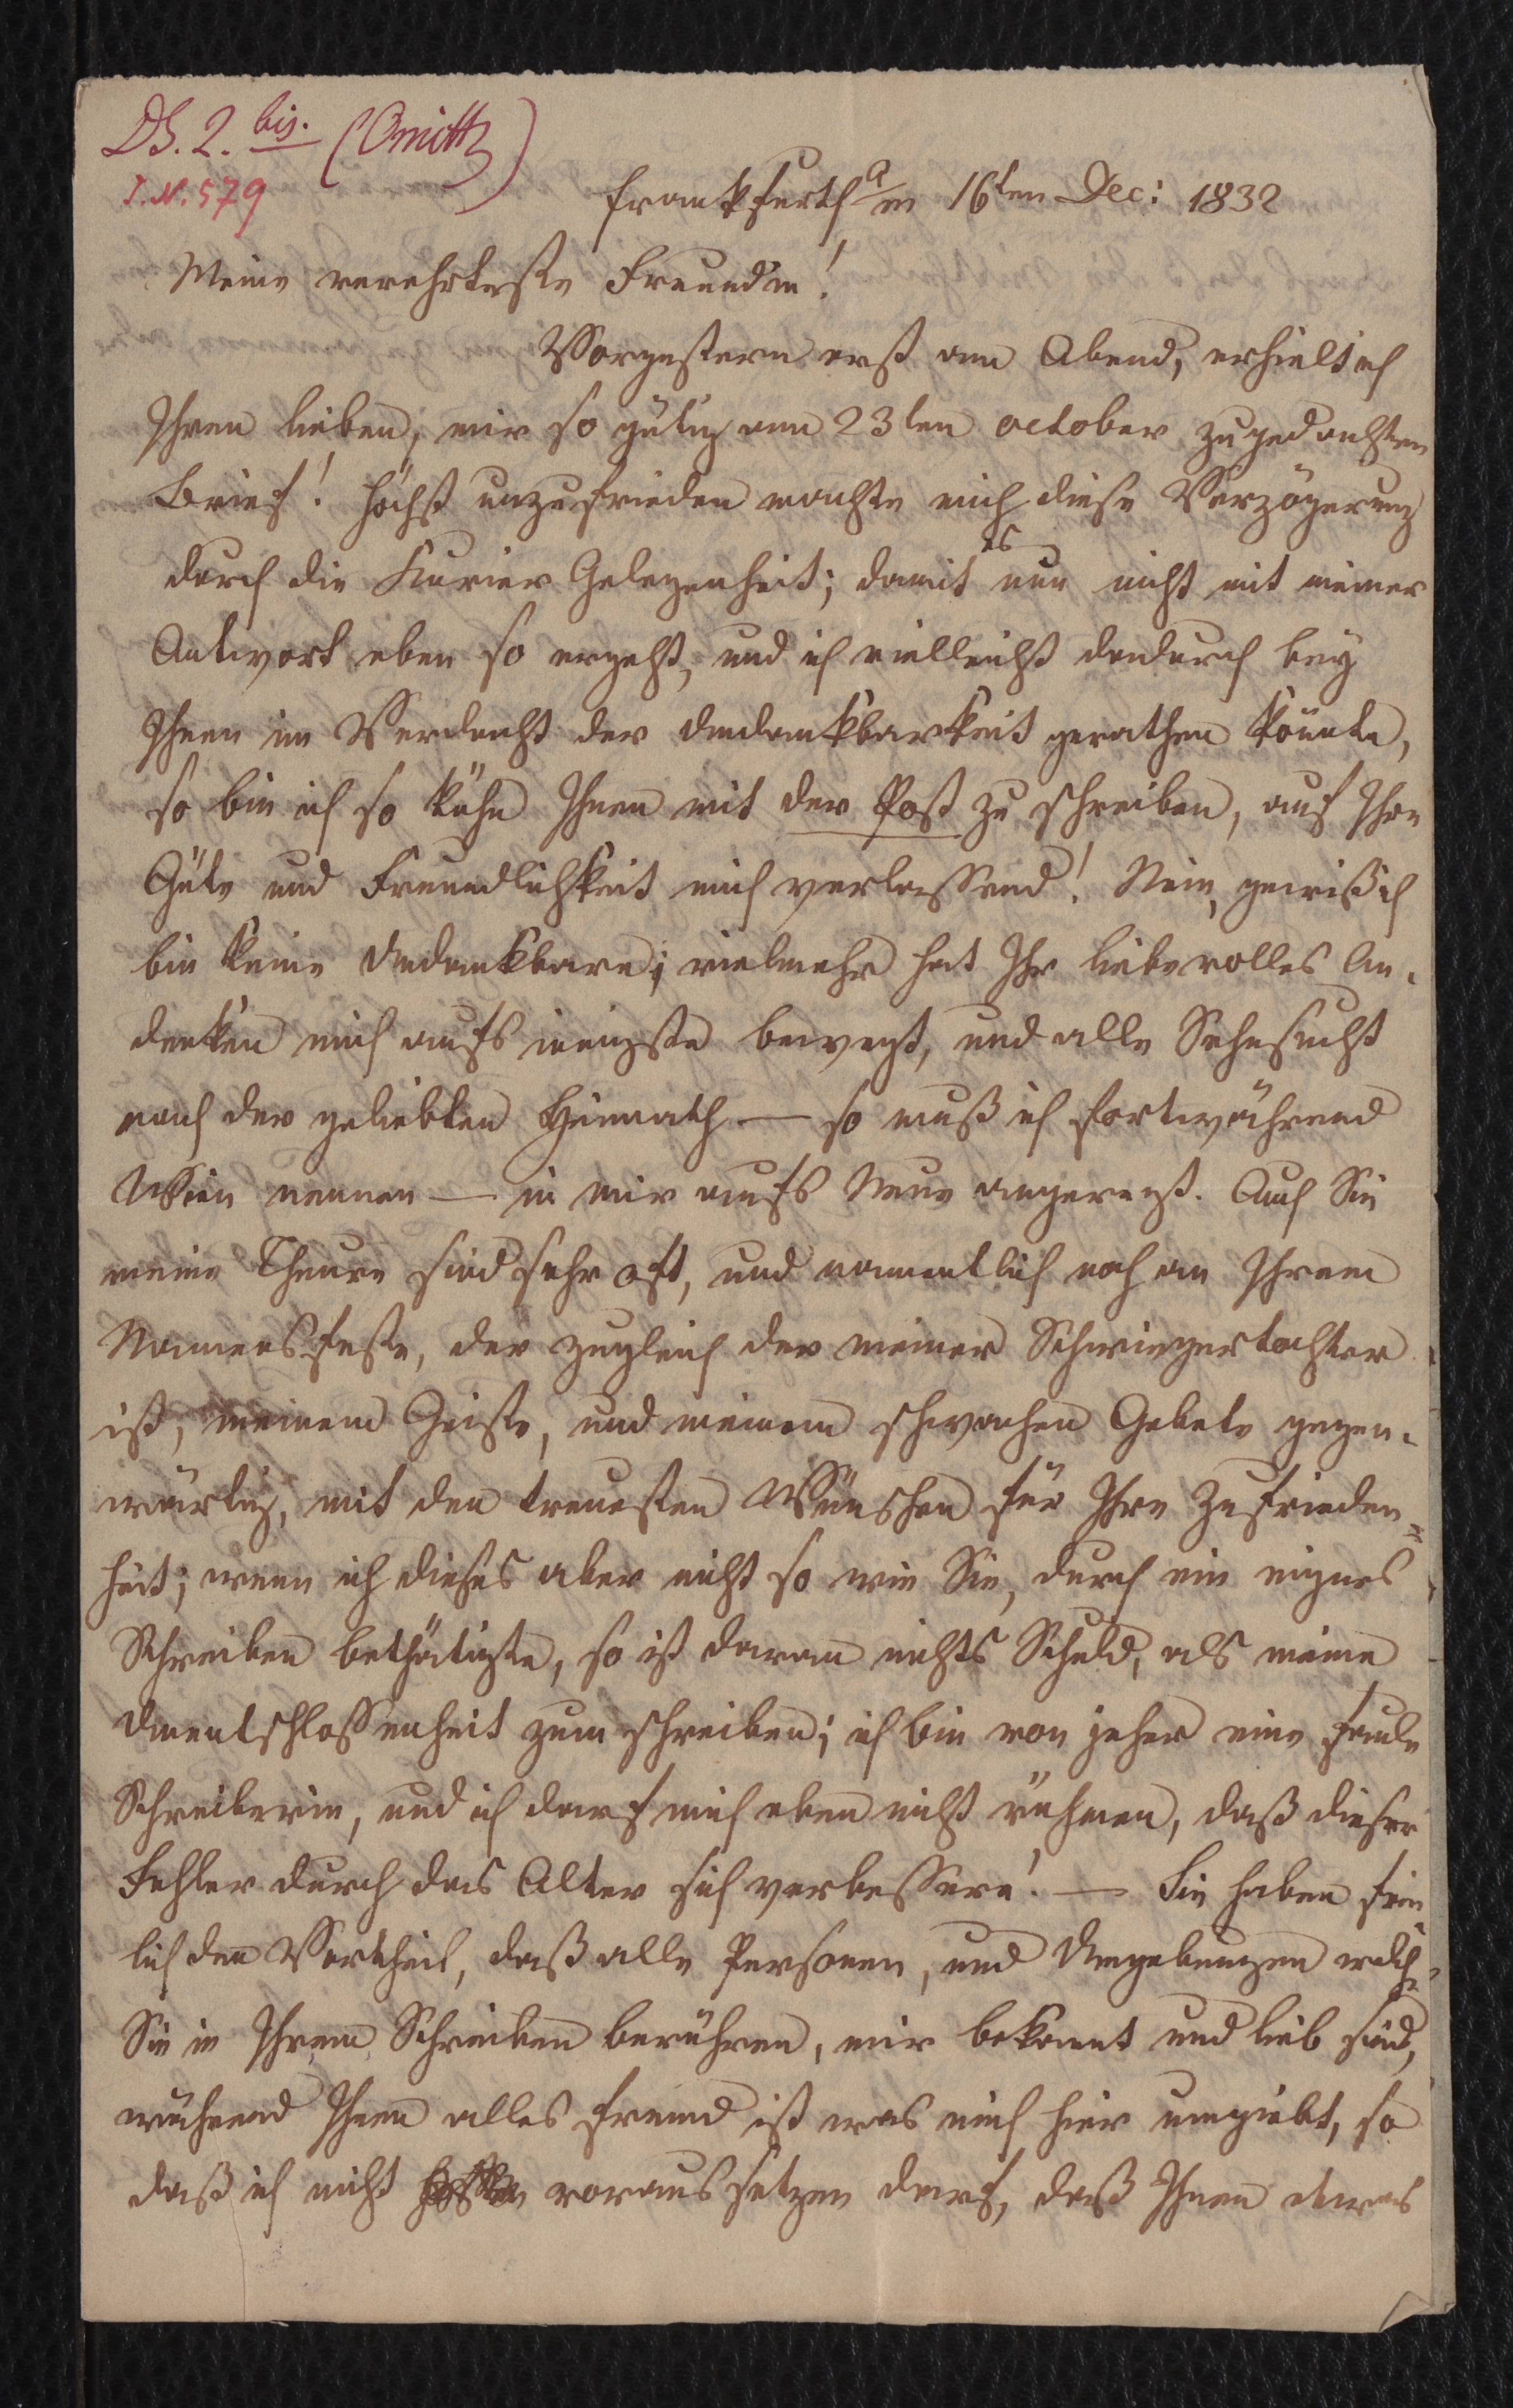 DS. 2. bis. (Omitth)
I.N. 579
Frankfurth a/m 16ten Dec: 1832
Meine verehrteste Freundin!
Vorgestern erst am Abend, erhielt ich
Ihren lieben, mir so gütig am 23ten october zugedachten
Brief! höchst unzufrieden machte mich diese Verzögerung
durch die Kurier Gelegenheit; damit es nur nicht mit meiner
Antwort eben so ergeht, und ich vielleicht dadurch bey
Ihnen in Verdacht der Undankbarkeit gerathen könnte,
so bin ich so kühn Ihnen mit der Post zu schreiben, auf Ihre
Güte und Freundlichkeit mich verlassend! Nein, gewiß ich
bin keine Undankbare; vielmehr hat Ihr liebevolles An-
denken mich aufs innigste bewegt, und alle Sehnsucht
nach der geliebten Heimath — so muß ich fortwährend
Wien nennen — in mir aufs Neue angeregt. Auch Sie
meine Theure sind sehr oft, und namentlich noch an Ihrem
Namensfeste, der zugleich der meiner Schwiegertochter
ist, meinem Geiste, und meinem schwachen Gebete gegen-
wärtig, mit den treuesten Wünschen für Ihre Zufrieden=
heit; wenn ich dieses aber nicht so wie Sie, durch ein eignes
Schreiben bethätigte, so ist daran nichts Schuld, als meine
Unentschlossenheit zum schreiben; ich bin von jeher eine faule
Schreiberin, und ich darf mich eben nicht rühmen, daß dieser
Fehler durch das Alter sich verbessere! — Sie haben frei
lich den Vortheil, daß alle Personen, und Umgebungen welche
Sie in Ihrem Schreiben berühren, mir bekannt und lieb sind,
während Ihnen alles fremd ist was mich hier umgiebt, so
daß ich nicht voraus setzen darf, daß Ihnen etwas